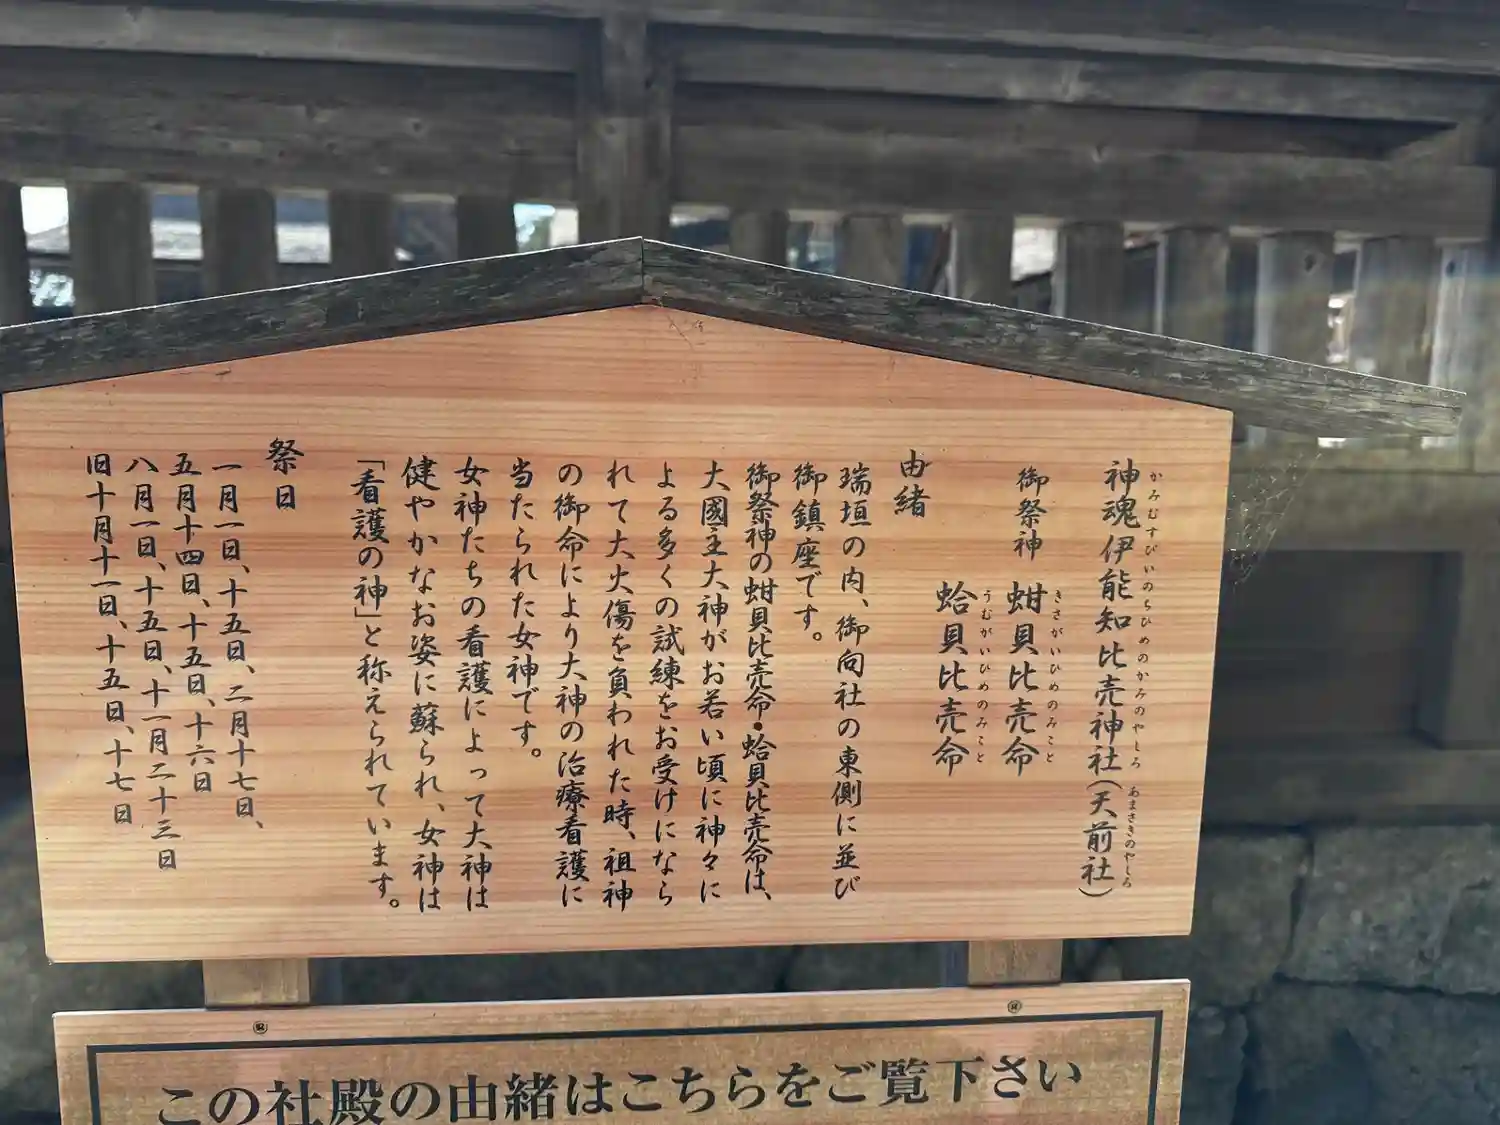 神魂伊能知比売神社(天前社)
かみむすびいのちひめのかみのやしろ
あまさきのやしろ
御祭神 蚶貝比売命
きさがいひめのみこと
蛤貝比売命
うむがいひめのみこと
由緒
瑞垣の内、御向社の東側に並び
御鎮座です。
御祭神の蚶貝比売命・蛤貝比売命は、
大國主大神がお若い頃に神々に
よる多くの試練をお受けになら
れて大火傷を負われた時、祖神
の御命により大神の治療看護に
当たられた女神です。
女神たちの看護によって大神は
健やかなお姿に蘇られ、女神は
「看護の神」と称えられています。
祭日
一月一日、十五日、二月十七日、
五月十四日、十五日、十六日
八月一日、十五日、十一月二十三日
旧十月十一日、十五日、十七日
この社殿の由緒はこちらをご覧下さい